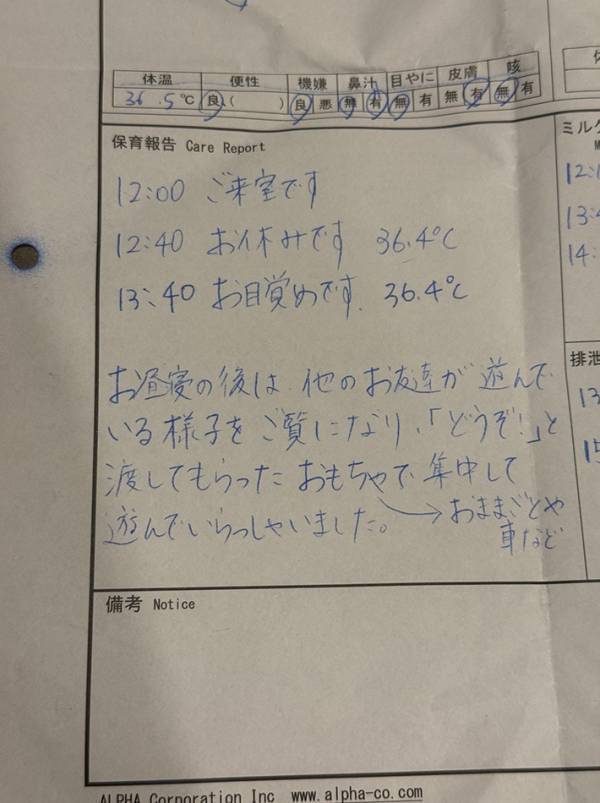 体温 便性 機嫌 鼻汁 目やに 皮膚 咳
36.5℃ 良(   ) 良 悪 無 有 無 有 無 有 無 有
保育報告 Care Report
12:00 ご来室です
12:40 お休みです 36.4℃
13:40 お目覚めです. 36.4℃
お昼寝の後は 他のお友達が 遊んで
いる様子を ご覧になり、「どうぞ!」と
渡してもらった おもちゃで 集中して
遊んでいらっしゃいました。→おままごとや
車など
備考 Notice
ミルク
12:1
13:4
14:
排泄
13
15
ALPHA Corporation Inc www.alpha-co.com